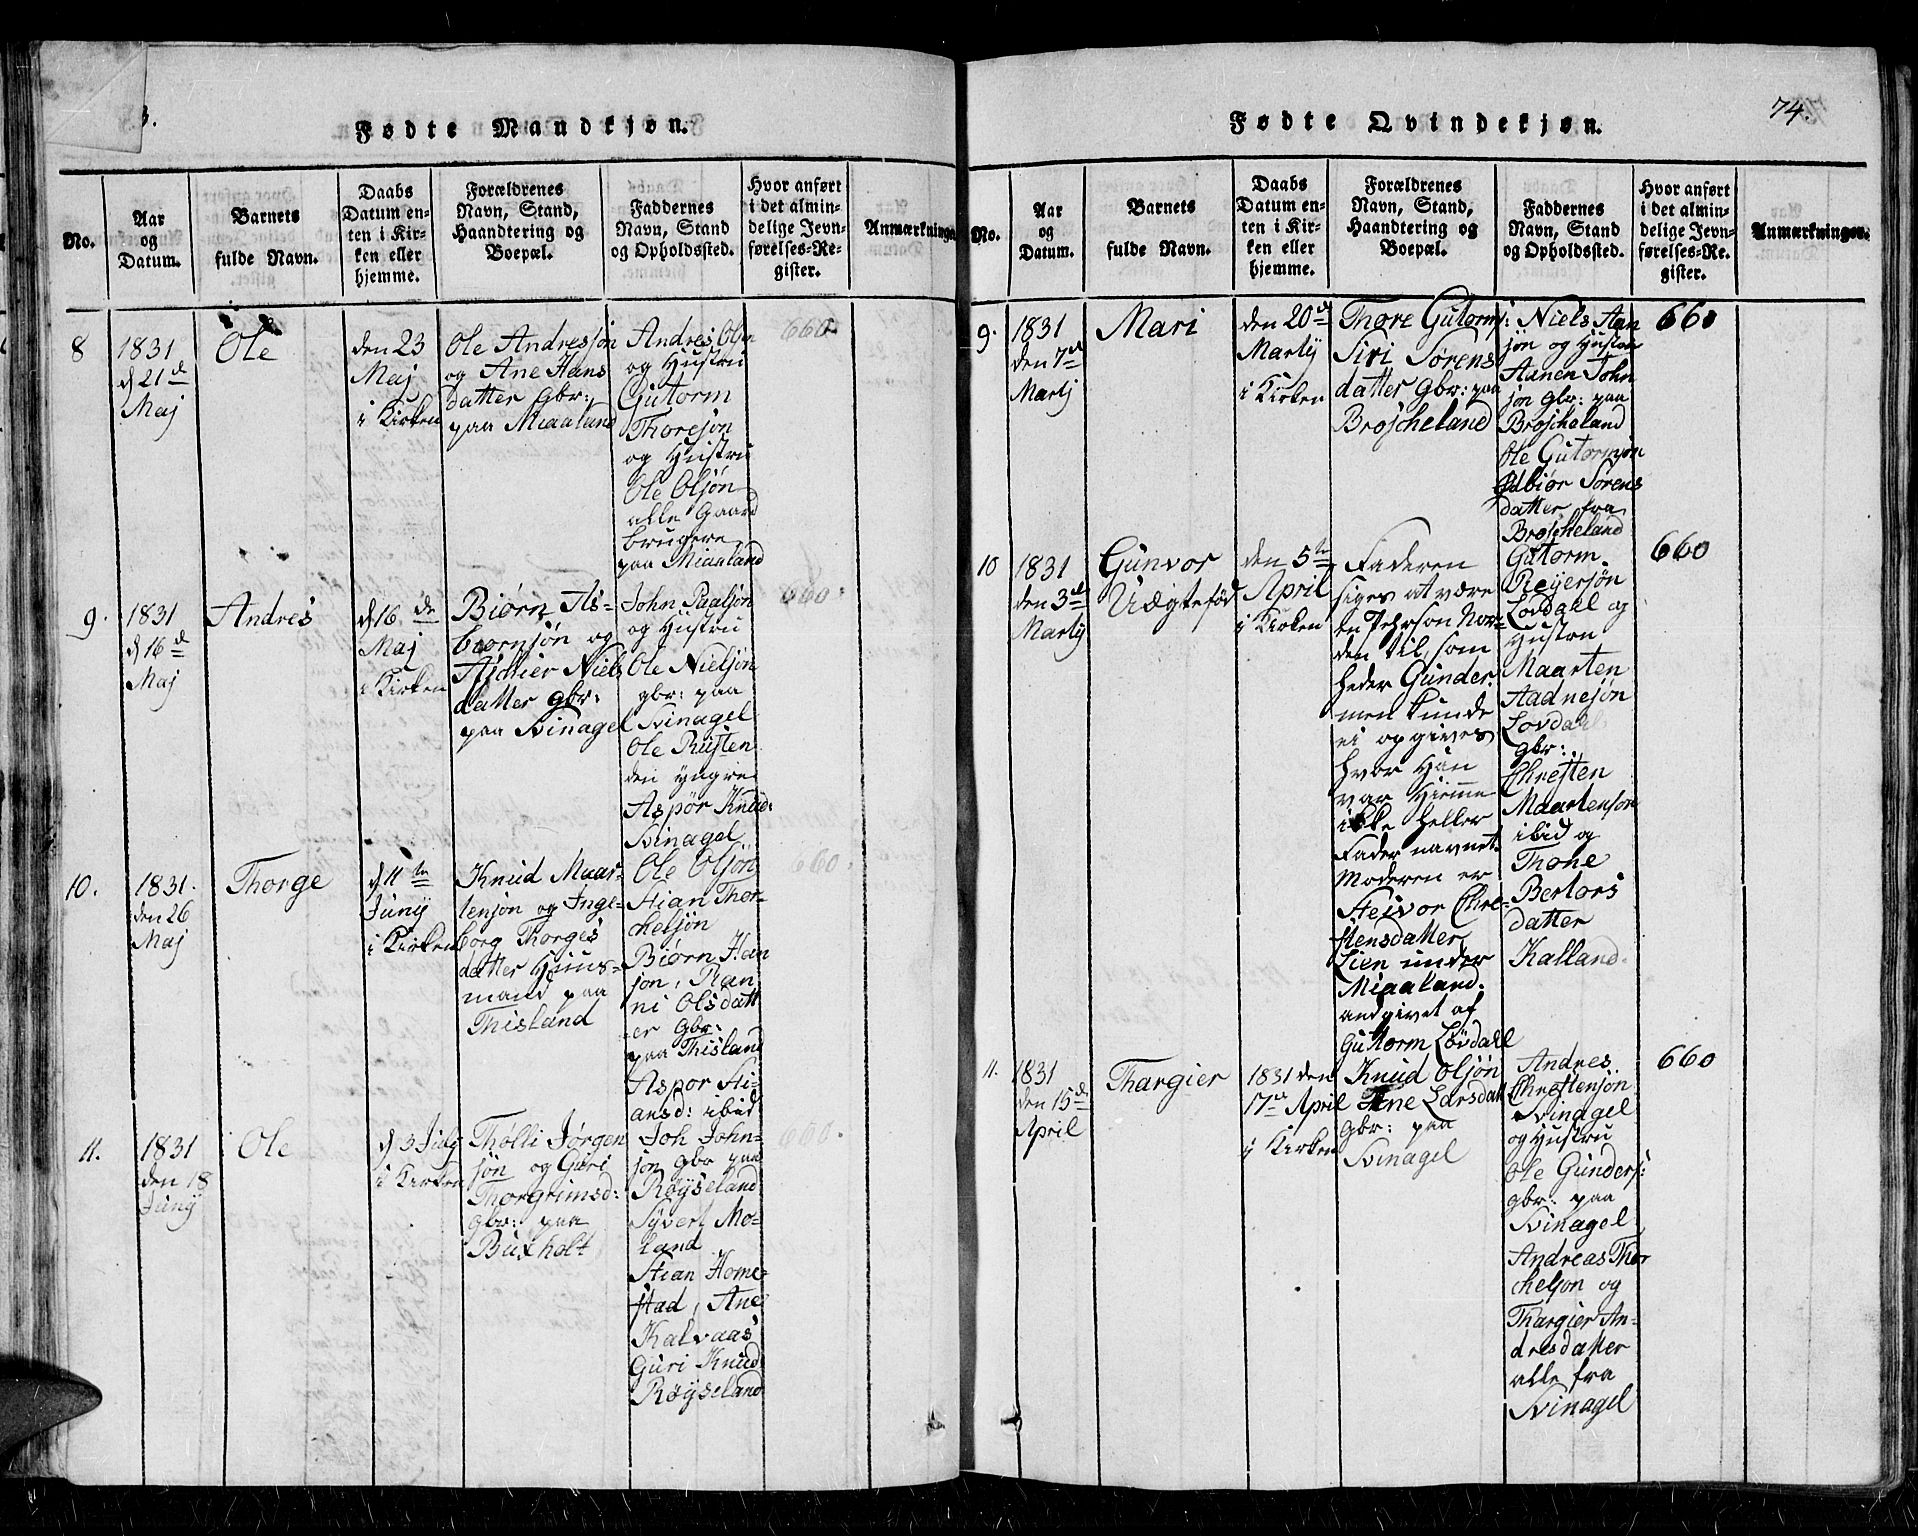 3.
Fødte Mandkjøn.
No.
Aar
og
Datum.
Barnets
fulde Navn.
Daabs
Datum en-
ten i Kir-
ken eller
hjemme.
Forældrenes
Navn, Stand,
Haandtering og
Boepæl.
Faddernes
Navn, Stand
og Opholdssted.
Hvor anført
i det almin-
delige Jevn-
førelses-Re-
gister.
Anmærkninger
8
1831
d 21de
Maj
Ole
den 23
Maj
i Kirken
Ole Andressøn
og Ane Hans
datter gbr:
paa Miaaland
Andres Olsn
og Hustru
Gutorm
Thoresøn
og Hustru
Ole Olsøn
alle Gaard
brugere
paa Miaaland
660.
9.
1831
d 16de
Maj
Andres
d 16.de
Maj
i Kirken
Biørn As-
biørnsøn og
Niels
datter gbr:
paa Svinagel
John Paalsøn
og Hustru
Ole Nielsøn
gbr: paa
Svinagel
Ole Rusten
den yngre
Aspør Knud:
Svinagel
660.
10.
1831.
den 26
Maj
Thorge
d 11te
Juny
i Kirken
Knud Maar-
tensøn og Inge-
borg Thorges
datter Huus-
mand paa
Thisland
Ole Olsøn
Stian Thor-
chelsøn
Biørn Han
søn, Ran
ni Olsdatt
-er gbr:
paa Thisland
Aspor Sti-
ansd: ibid
660.
11.
1831
den 18
Juny
Ole
d 3 July
i Kirken
Thølli Jørgen
søn og Guri
Thorgrimsd:
gbr: paa
Buxholt
Joh John-
søn gbr paa
Røyseland
Syvert Mo-
land
Stian Home-
stad, Ane
Kalvaas
Guri Knud
Røyseland
660.
74.
Fødte Qvindekjøn.
No.
Aar
og
Datum.
Barnets
fulde Navn.
Daabs
Datum en-
ten i Kir-
ken eller
hjemme.
Forældrenes
Navn, Stand,
Haandtering og
Boepæl.
Faddernes
Navn, Stand
og Opholdssted.
Hvor anført
i det almin-
delige Jevn-
førelses-Re-
gister.
Anmærkninger.
9.
1831
den 7de
Martij
Mari
den 20de
Martij
i Kirken
Thore Gutorms:
Siri Sørens
datter gbr: paa
Broscheland
Niels Aan
søn og Hustru
Aanen John
søn gbr: paa
Broscheland
Ole Gutormsøn
Odbiør Sørens
datter fra
Broscheland
660
10
1831
den 3de
Martij
Gunvor
Uægtefød
den 5te
April
i Kirken
Faderen
siges at være
en Person Nor-
den til, som
heder Gunder.
men kunde
ei opgives
hvor Han
var Hieme
ikke heller
Fader navnet.
Moderen er
Steivor Chre-
stensdatter
Lien under
Miaaland.
andgivet af
Gutorm Løvdall
Gutorm
Reyersøn
Løvdahl og
Hustru
Maarten
Aadnesøn
Lovdahl
gbr:
Chresten
Maartenson
ibid og
Thone
Bertors
datter
Kalland.
660
11.
1831
den 15de
April
Thargier
1831 den
17de April
i Kirken
Knud Olsøn
Ane Larsdatt
gbr: paa
Svinagel
Andres
Chrestensøn
Svinagel
og Hustru
Ole Gunders:
gbr: paa
Svinagel
Andreas Thor
chelsøn og
Thargier An-
dresdatter
alle fra
Svinagel
660